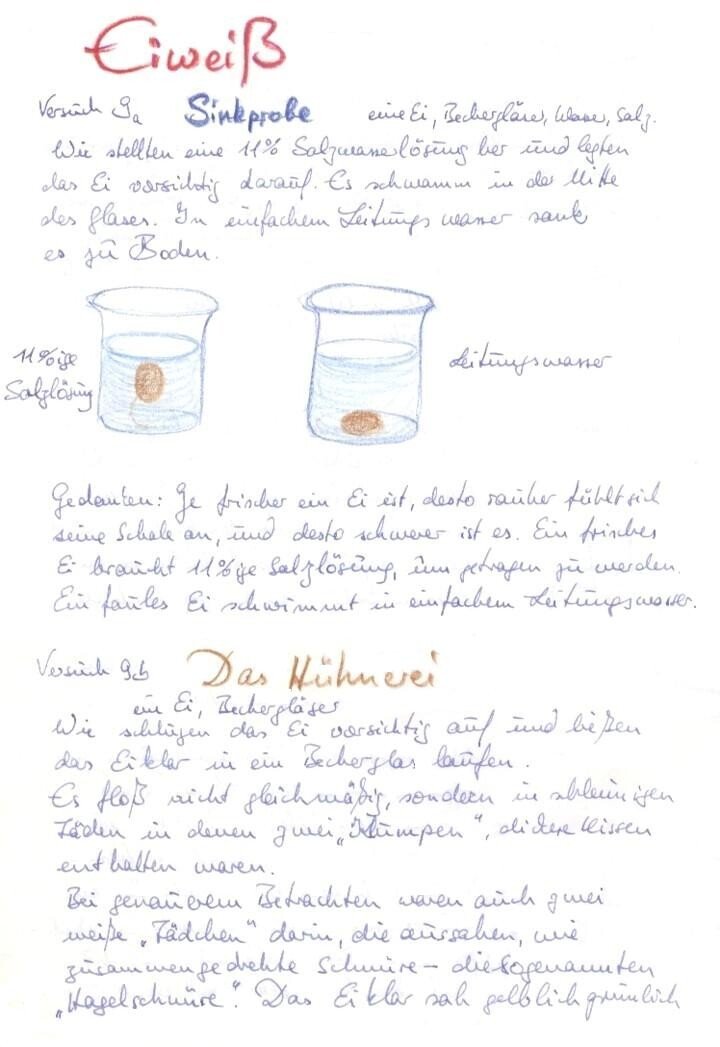 Eiweiß
Versuch 9a Sinkprobe eine Ei, Bechergläser, Wasser, Salz.
Wir stellten eine 11% Salzwasserlösung her und legten
das Ei vorsichtig darauf. Es schwamm in der Mitte
des Glases. In einfachem Leitungswasser sank
es zu Boden.
11%ige
Salzlösung
Leitungswasser
Gedanken: Je frischer ein Ei ist, desto rauher fühlt sich
seine Schale an, und desto schwerer ist es. Ein frisches
Ei braucht 11%ige Salzlösung, um getragen zu werden.
Ein faules Ei schwimmt in einfachem Leitungswasser.
Versuch 9b Das Hühnerei
ein Ei, Bechergläser
Wir schlugen das Ei vorsichtig auf und ließen
das Eiklar in ein Becherglas laufen.
Es floß nicht gleichmäßig, sondern in schleimigen
Fäden in denen zwei „Klumpen", dickere Kissen
enthalten waren.
Bei genauerem Betrachten waren auch zwei
weiße „Fädchen" darin, die aussahen, wie
zusammengedrehte Schnüre – die sogenannten
„Hagelschnüre". Das Eiklar sah gelblichgrünlich